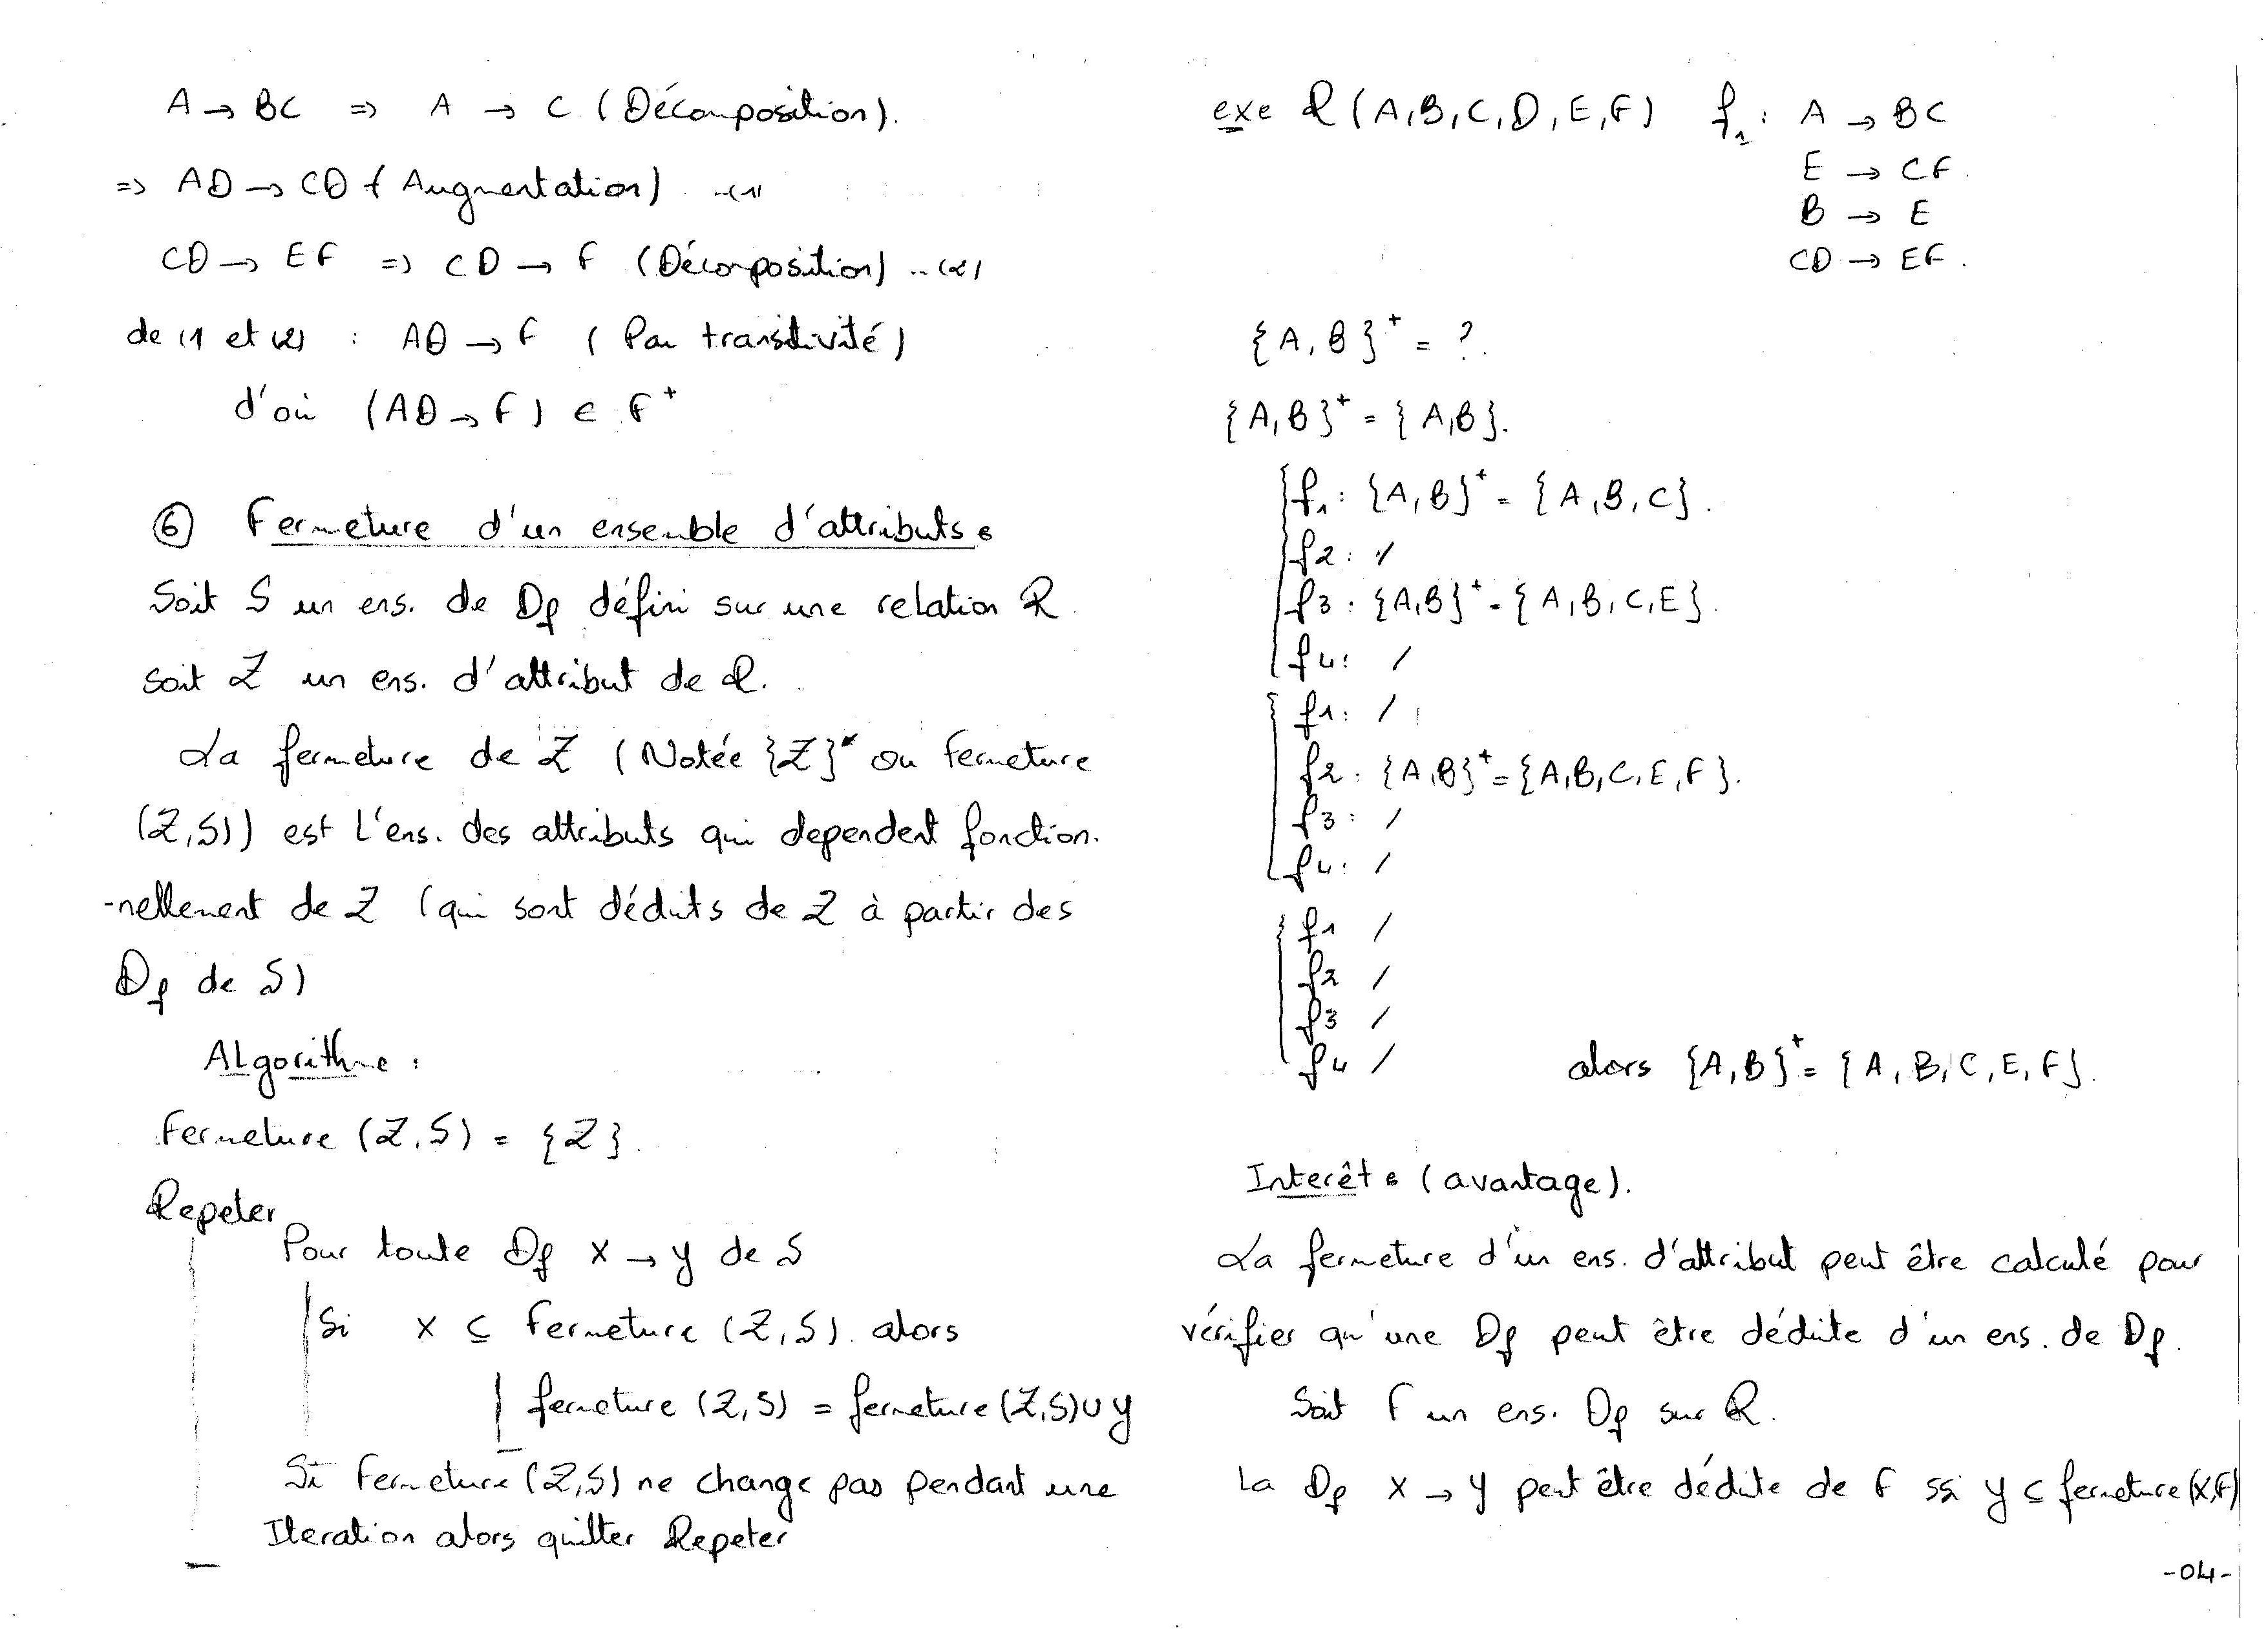 A → BC ⇒ A → C (Décomposition).
⇒ AD → CD (Augmentation) ..(1)
CD → EF ⇒ CD → F (Décomposition) ..(2)
de (1 et (2) : AD → F (Par transitivité)
d'où (AD → F) ∈ F⁺
⑥ Fermeture d'un ensemble d'attributs :
Soit S un ens. de Df défini sur une relation R
soit Z un ens. d'attribut de R.
La fermeture de Z (Notée {Z}⁺ ou Fermeture
(Z,S)) est L'ens. des attributs qui dependent fonction.
-nellement de Z (qui sont déduits de Z à partir des
Df de S)
ALgorithme :
Fermeture (Z,S) = {Z}.
Repeter
Pour toute Df X → Y de S
Si X ⊆ Fermeture (Z,S) alors
fermeture (Z,S) = fermeture (Z,S) ∪ Y
Si Fermeture (Z,S) ne change pas pendant une
Iteration alors quitter Repeter
exe R (A,B,C,D,E,F) f₁ : A → BC
E → CF.
B → E
CD → EF.
{A,B}⁺ = ?.
{A,B}⁺ = {A,B}.
f1 : {A,B}⁺ = {A,B,C}.
f2 : /
f3 : {A,B}⁺ = {A,B,C,E}.
f4 : /
f1 : /
f2 : {A,B}⁺ = {A,B,C,E,F}.
f3 : /
f4 : /
f1 /
f2 /
f3 /
f4 / alors {A,B}⁺ = {A,B,C,E,F}.
Interêt : (avantage).
La fermeture d'un ens. d'attribut peut être calculé pour
vérifier qu'une Df peut être déduite d'un ens. de Df.
Soit F un ens. Df sur R.
La Df X → Y peut être déduite de F ssi Y ⊆ fermeture (X,F)
-04-